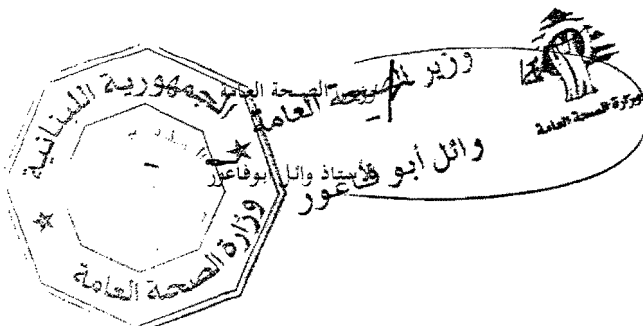 الجمهورية اللبنانية
وزارة الصحة العامة
وزير الصحة العامة
وائل أبو فاعور
وزير الصحة العامة
الأستاذ وائل أبو فاعور
وزارة الصحة العامة